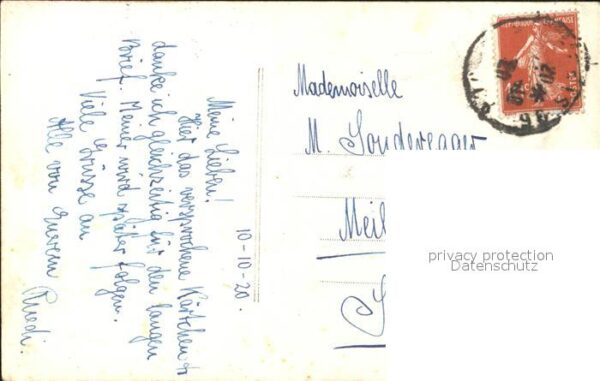 10-10-20.
Meine Lieben!
Hier das versprochene Kärtchen &
danke ich gleichzeitig für den langen
Brief. Meiner wird später folgen.
Viele Grüsse an
Alle von Euerem
Ruedi.
Mademoiselle
M. Sonderegger
Meil
RÉPUBLIQUE FRANÇAISE
privacy protection
Datenschutz